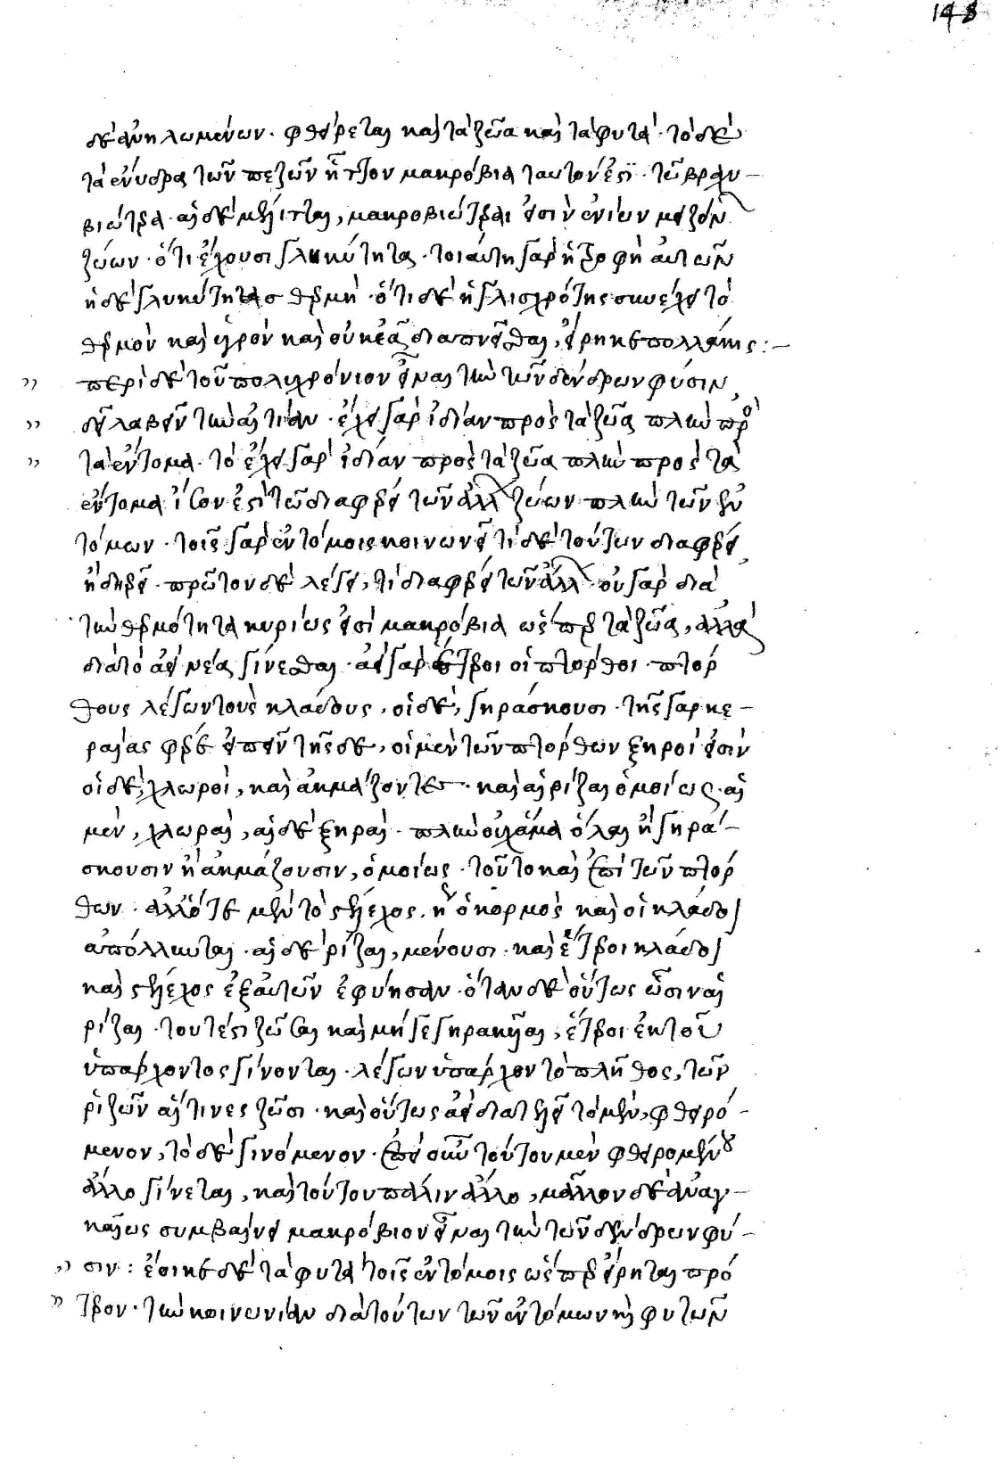 148
δὲ ἀνηλωμένων. φθείρεται καὶ τὰ ζῶα καὶ τὰ φυτά. τὸ δὲ
τὰ ἔνυδρα τῶν πεζῶν ἧττον μακρόβια ταυτόν ἐστι. τῶ βραχυ–
βιώτερα. αἱ δὲ μέλιτται, μακροβιώτεραι εἰσὶν ἐνίων μειζόνων
ζώων. ὅτι ἔχουσι γλυκύτητα. τοιαύτη γὰρ ἡ τροφὴ αὐτῶν
ἡ δὲ γλυκύτης θερμὴ. ὅτι δὲ ἡ γλισχρότης συνέχει τὸ
θερμὸν καὶ ὑγρὸν καὶ οὐκ ἐᾶ διαπνεῖσθαι, εἴρηκε πολλάκις:–
περὶ δὲ τοῦ πολυχρόνιον εἶναι τὴν τῶν δένδρων φύσιν,
δεῖ λαβεῖν τὴν αἰτίαν. ἔχει γὰρ ἰδίαν πρὸς τὰ ζῶα πλὴν πρὸς
τὰ ἔντομα. τὸ ἔχει γὰρ ἰδίαν πρὸς τὰ ζῶα πλὴν πρὸς τὰ
ἔντομα ἴσον ἐστὶ τῶ διαφέρει τῶν ἄλλων ζώων πλὴν τῶν ἐν
τόμων. τοῖς γὰρ ἐντόμοις κοινωνεῖ τί δὲ τούτων διαφέρει,
ἤδη ἐρεῖ. πρῶτον δὲ λέγει, τί διαφέρει τῶν ἄλλων. οὐ γὰρ διὰ
τὴν θερμότητα κυρίως εἰσὶ μακρόβια ὥσπερ τὰ ζῶα, ἀλλὰ
διὰ τὸ ἀεὶ νέα γίνεσθαι. ἀεὶ γὰρ ἕτεροι οἱ πτόρθοι. πτόρ
θους λέγων τοὺς κλάδους, οἱ δὲ, γηράσκουσι. τῆς γὰρ κε–
ραίας φέρε εἰπεῖν τῆσδε, οἱ μὲν τῶν πτόρθων ξηροί εἰσιν
οἱ δὲ, χλωροὶ, καὶ ἀκμάζοντες. καὶ αἱ ρίζαι ὁμοίως. αἱ
μὲν, χλωραὶ, αἱ δὲ ξηραὶ. πλὴν οὐχ ἅμα ὅλαι ἢ γηρά–
σκουσιν ἢ ἀκμάζουσιν, ὁμοίως. τοῦτο καὶ ἐπὶ τῶν πτόρ
θων. ἀλλ' ὅτε μὲν τὸ στέλεχος, ἢ ὁ κορμὸς καὶ οἱ κλάδοι
ἀπόλλυται. αἱ δὲ ρίζαι, μένουσι. καὶ ἕτεροι κλάδοι
καὶ στέλεχος ἐξ αὐτῶν ἐφύησαν. ὅταν δὲ οὕτως ὦσιν αἱ
ρίζαι. τουτέστι ζῶσαι καὶ μὴ γεγηρακυῖαι, ἕτεροι ἐκ τοῦ
ὑπάρχοντος γίνονται. λέγων ὑπάρχον τὸ πλῆθος, τῶν
ριζῶν αἵτινες ζῶσι. καὶ οὕτως ἀεὶ διατελεῖ τὸ μὲν, φθειρό–
μενον, τὸ δὲ γινόμενον. ἐπεὶ οὖν τούτου μὲν φθειρομένου
ἄλλο γίνεται, καὶ τούτου πάλιν ἄλλο, μᾶλλον δὲ ἀναγ–
καίως συμβαίνει μακρόβιον εἶναι τὴν τῶν δένδρων φύ–
σιν: ἔοικε δὲ τὰ φυτὰ τοῖς ἐντόμοις ὥσπερ εἴρηται πρό
τερον. τὴν κοινωνίαν διὰ τούτων τῶν ἐντόμων καὶ φυτῶν